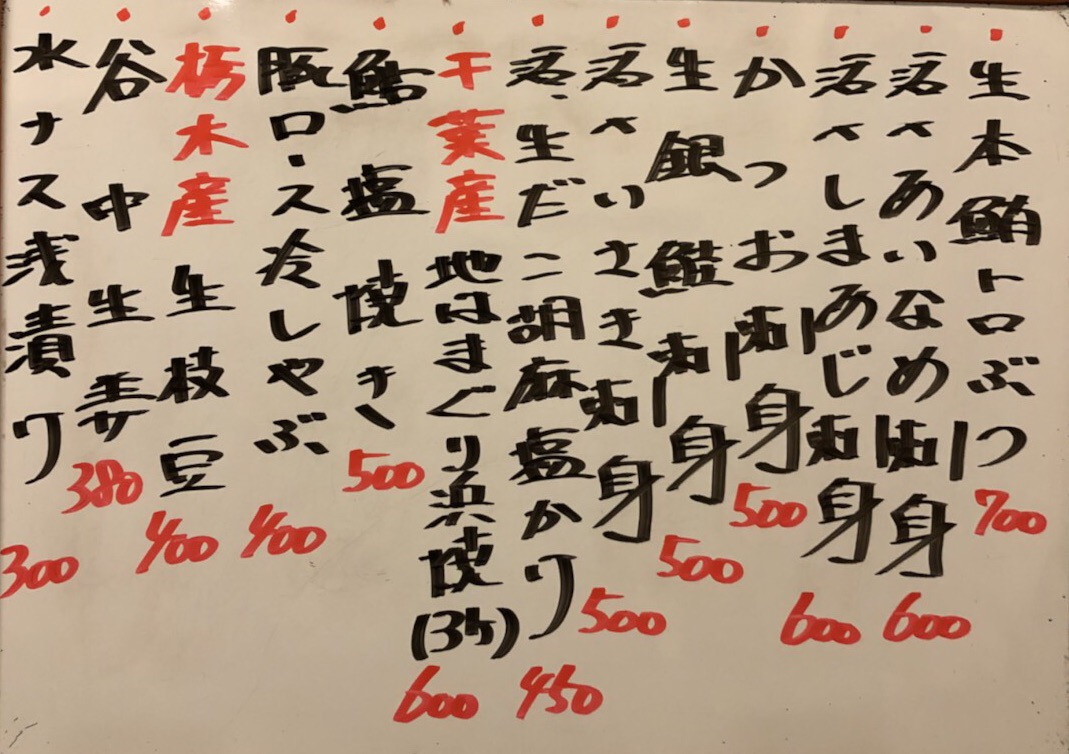 生本鮪トロぶつ 700
活〆あいなめ刺身 600
活〆しまあじ刺身 600
かつお刺身 500
生銀鮭刺身 500
活〆いさき刺身 500
活生だこ胡麻塩かり 450
千葉産地はまぐり浜焼(3ケ) 600
鮎塩焼き 500
豚ロース冷しゃぶ 400
栃木産生枝豆 400
谷中生姜 380
水ナス浅漬り 300